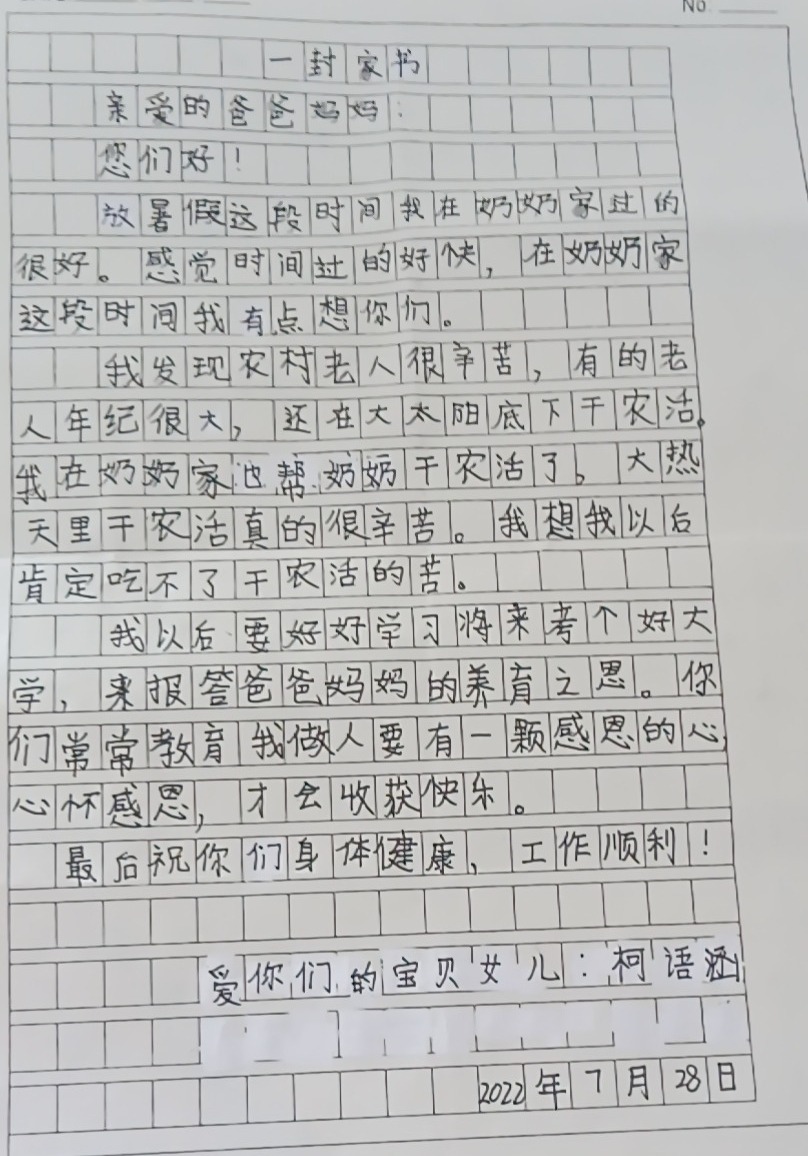 No
一封家书
亲爱的爸爸妈妈：
您们好！
放暑假这段时间我在奶奶家过的
很好。感觉时间过的好快，在奶奶家
这段时间我有点想你们。
我发现农村老人很辛苦，有的老
人年纪很大，还在大太阳底下干农活。
我在奶奶家也帮奶奶干农活了。大热
天里干农活真的很辛苦。我想我以后
肯定吃不了干农活的苦。
我以后要好好学习将来考个好大
学，来报答爸爸妈妈的养育之恩。你
们常常教育我做人要有一颗感恩的心，
心怀感恩，才会收获快乐。
最后祝你们身体健康、工作顺利！
爱你们的宝贝女儿：柯语涵
2022年7月28日